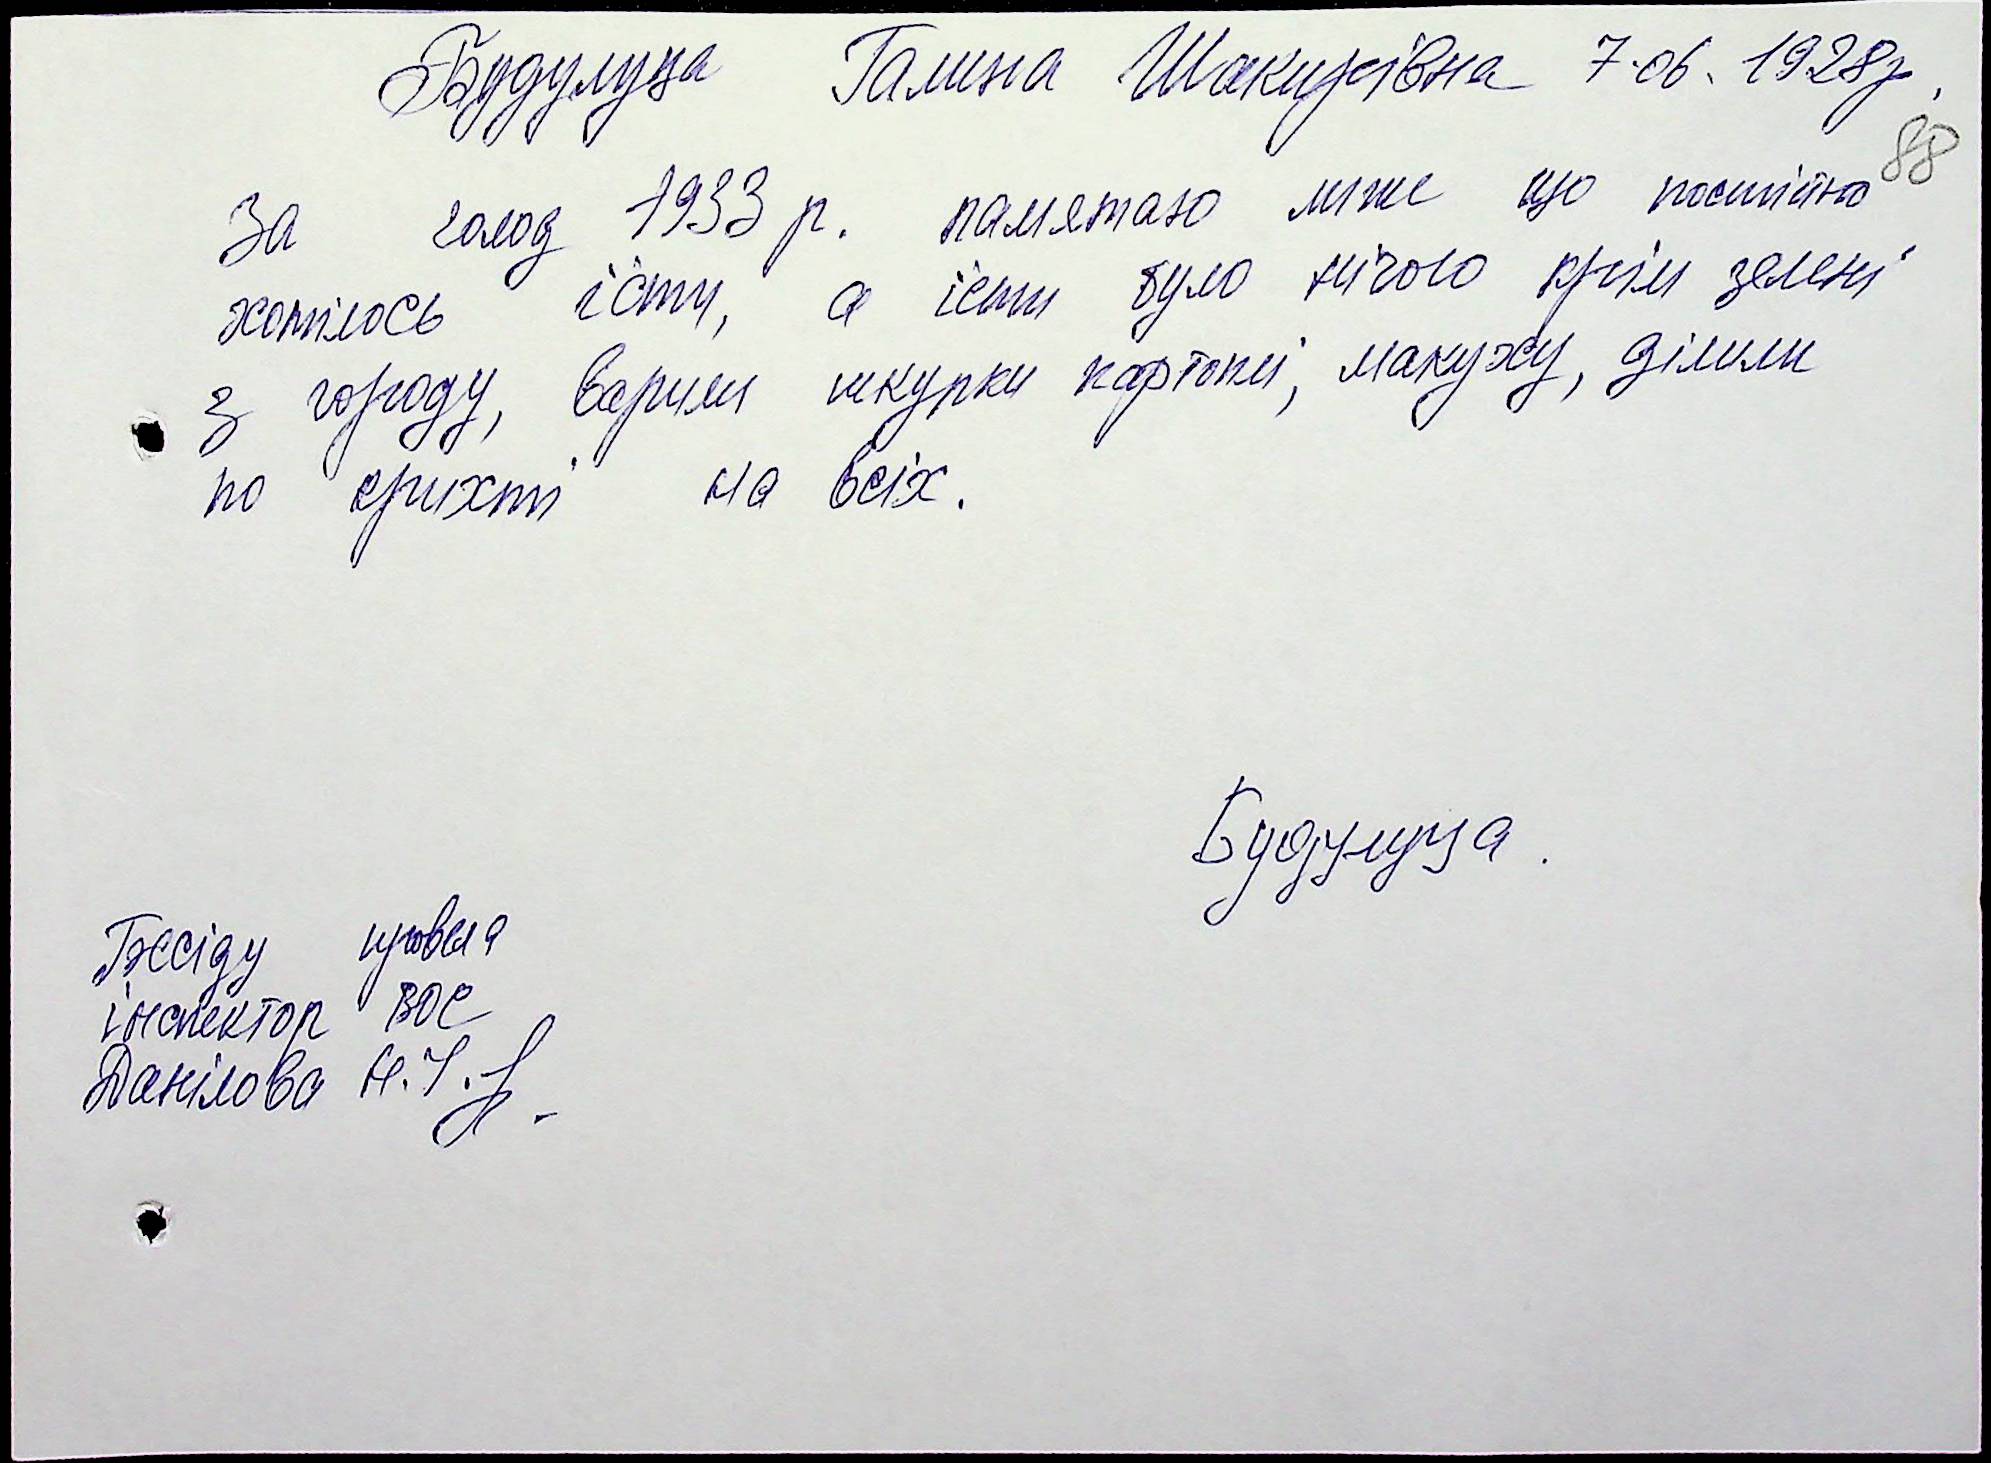 Будулуца Галина Шакирівна 7.06.1928р.
88
За голод 1933 р. памятаю лише що постійно
хотілось їсти, а їсти було нічого крім зелені
з городу, варили шкурки картоплі, макуху, ділили
по крихті на всіх.
Будулуца.
Бесіду провела
інспектор ВОС
Данілова Н.І.